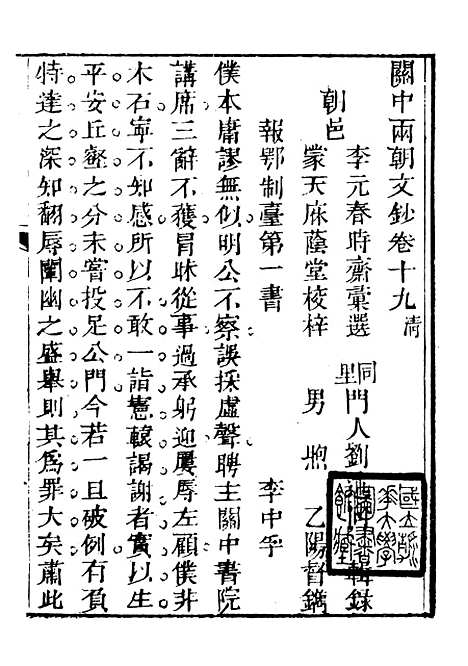 關中兩朝文鈔卷十九 清
朝邑 李元春時齋彙選 同里 門人劉 輯錄
蒙天庥蔭堂校梓 男㷒 乙陽督鐫
報鄂制臺第一書 李中孚
僕本庸謬無似明公不察誤採虛聲聘主關中書院
講席三辭不獲冒昧從事過承躬迎屢辱左顧僕非
木石寧不知感所以不敢一詣憲轅謁謝者實以生
平安丘壑之分未嘗投足公門今若一旦破例有負
特達之深知翻辱闡幽之盛舉則其爲罪大矣肅此